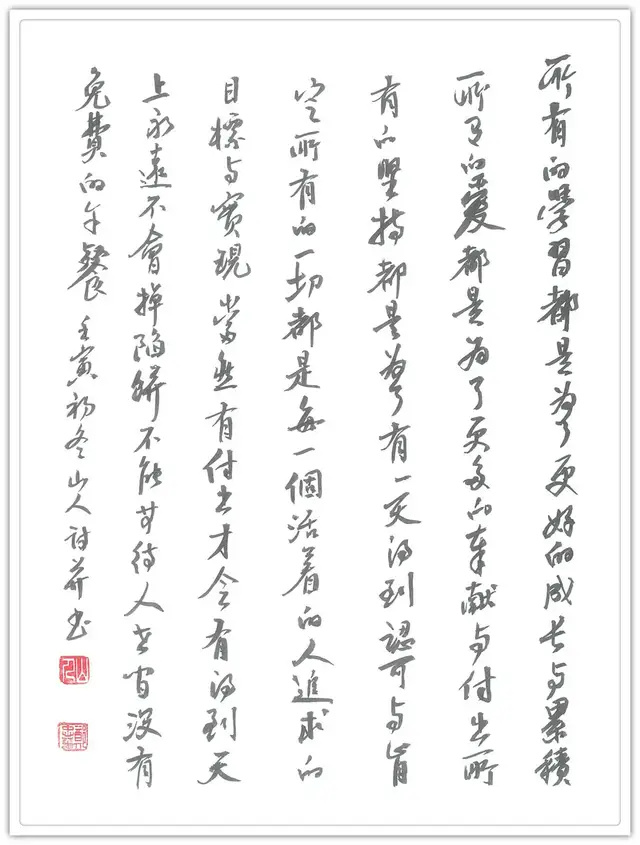 所有的學習都是為了更好的成長与累積
所有的愛都是为了更多的奉献与付出所
有的堅持都是為了有一天得到認可与肯
定所有的一切都是每一個活着的人追求的
目標与實現當然有付出才会有得到天
上永遠不會掉陷餅不能苦待人世间没有
免費的午餐壬寅初冬山人詩并书
山人